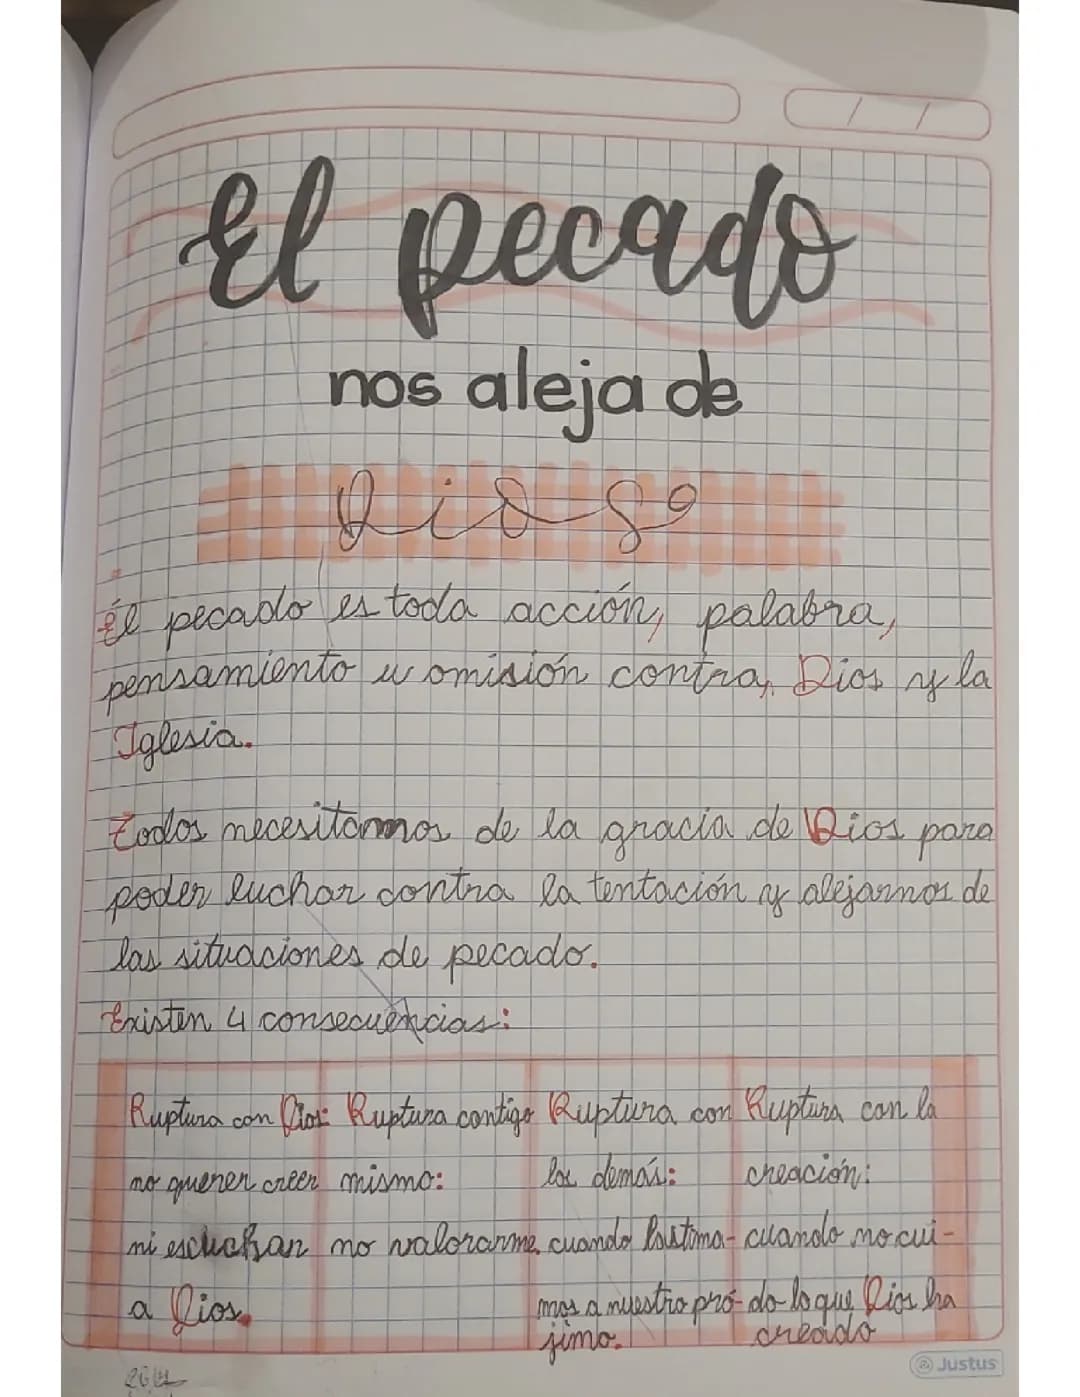 El pecado
nos aleja de
Dios
El pecado es toda acción, palabra,
pensamiento u omisión contra, Dios y la
Iglesia.
Todos necesitamos de la gracia de Dios para
poder luchar contra la tentación y alejarnos de
las situaciones de pecado.
Existen 4 consecuencias:
Ruptura con Dios:
no querer creer
ni escuchar
a Dios.
Ruptura contigo
mismo:
no valorarme.
Ruptura con
los demás:
cuando lastima-
mos a nuestro pró-
jimo.
Ruptura con la
creación:
cuando no cui-
do lo que Dios ha
creado
Justus